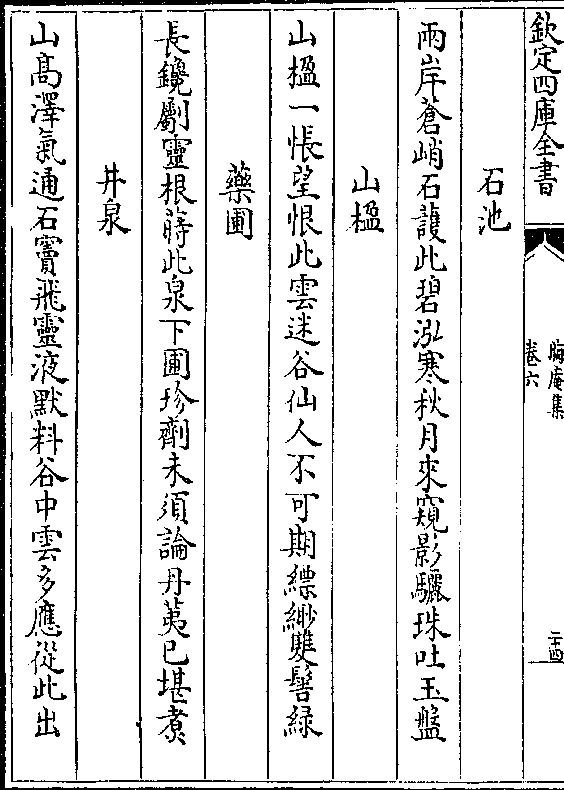 欽定四庫全書
晦庵集
卷六
二十四
石池
兩岸蒼峭石護此碧泓寒秋月來窺影驪珠吐玉盤
山楹
山楹一悵望恨此雲迷谷仙人不可期縹緲雙髻綠
藥圃
長鑱劚靈根蒔此泉下圃珍劑未須論丹荑已堪煮
井泉
山髙澤氣通石竇飛靈液默料谷中雲多應從此出